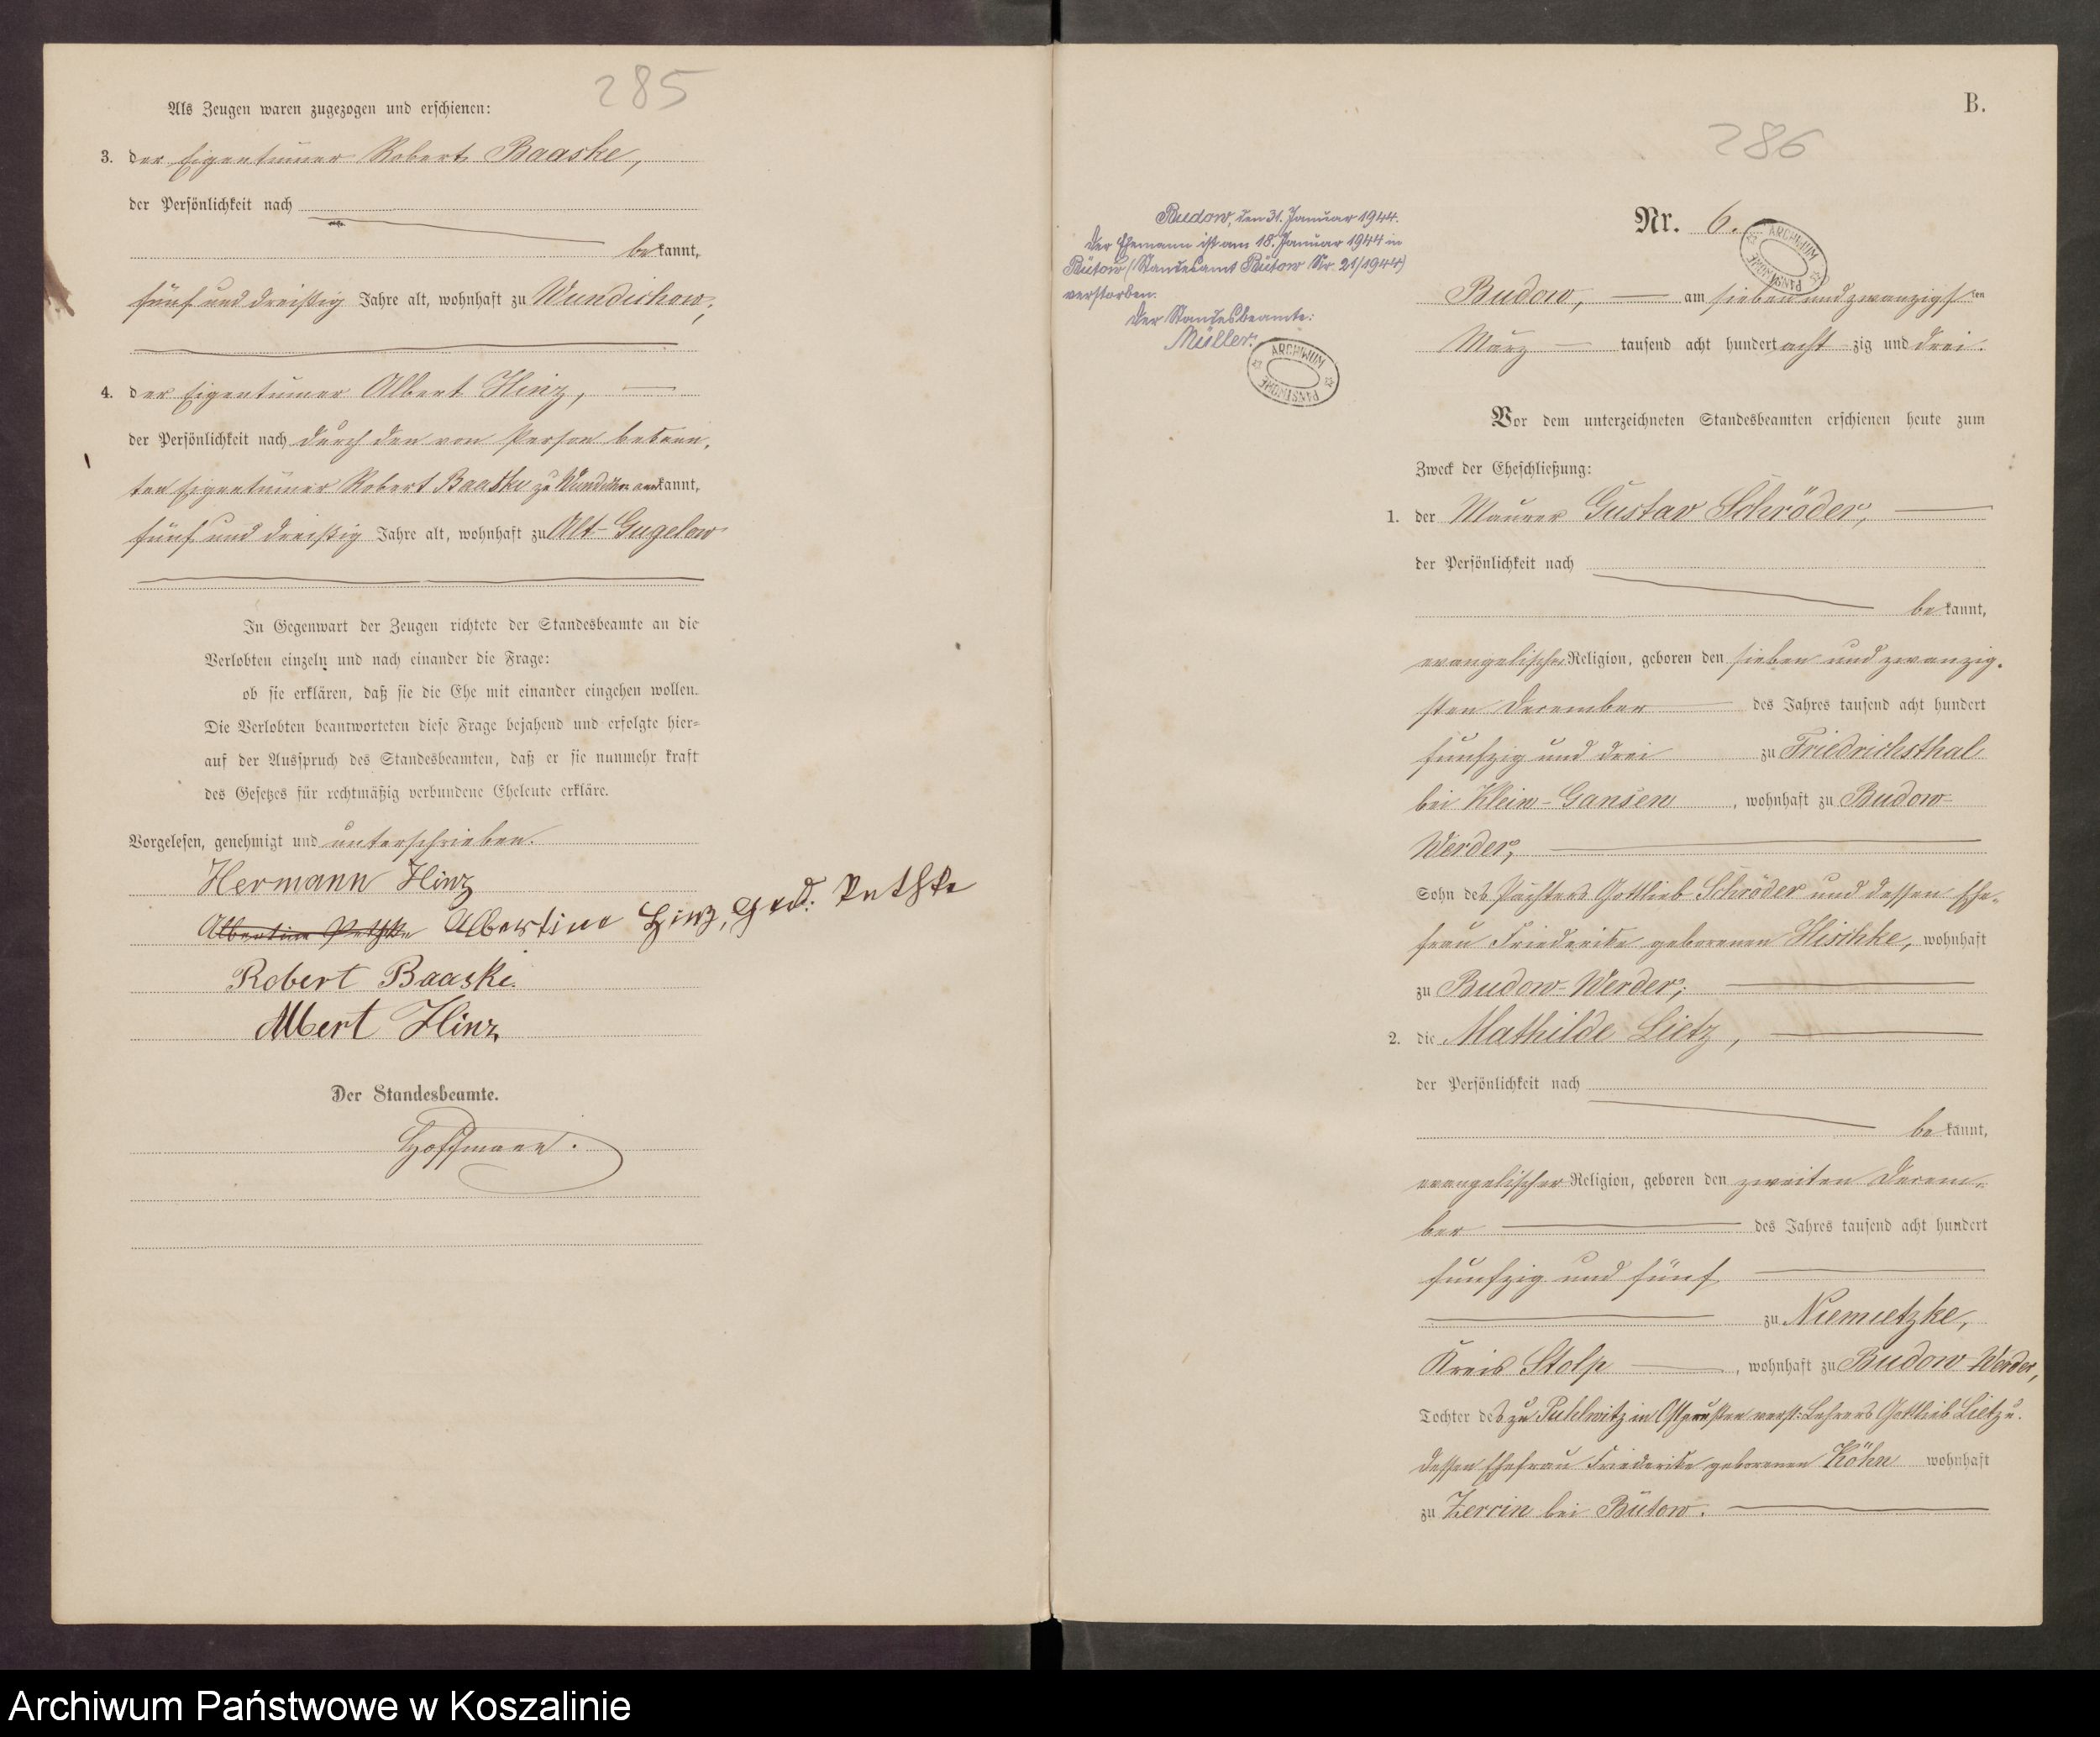 285
Als Zeugen waren zugezogen und erschienen:
3. der Eigentümer Robert Baaske,
der Persönlichkeit nach
be kannt,
fünf und dreißig Jahre alt, wohnhaft zu Wundichow;
4. der Eigentümer Albert Hinz,
der Persönlichkeit nach durch den von Person bekann-
ten Eigentümer Robert Baaske zu Wundichow anerkannt,
fünf und dreißig Jahre alt, wohnhaft zu Alt-Gugelow
In Gegenwart der Zeugen richtete der Standesbeamte an die
Verlobten einzeln und nach einander die Frage:
ob sie erklären, daß sie die Ehe mit einander eingehen wollen.
Die Verlobten beantworteten diese Frage bejahend und erfolgte hier-
auf der Ausspruch des Standesbeamten, daß er sie nunmehr kraft
des Gesetzes für rechtmäßig verbundene Eheleute erkläre.
Vorgelesen, genehmigt und unterschrieben.
Hermann Hinz
Albertine Pethke Albertine Hinz, geb: Pethke
Robert Baaske.
Albert Hinz
Der Standesbeamte.
Hoffmann.
B.
286
Nr. 6.
ARCHIWUM PAŃSTWOWE
Budow, den 31. Januar 1944.
Der Ehemann ist am 18. Januar 1944 in
Bütow (Standesamt Bütow Nr. 21/1944)
verstorben.
Der Standesbeamte:
Müller.
ARCHIWUM PAŃSTWOWE
Budow, am sieben und zwanzigsten
März tausend acht hundert acht zig und drei.
Vor dem unterzeichneten Standesbeamten erschienen heute zum
Zweck der Eheschließung:
1. der Maurer Gustav Schröder,
der Persönlichkeit nach
be kannt,
evangelischer Religion, geboren den sieben und zwanzig-
sten December des Jahres tausend acht hundert
fünfzig und drei zu Friedrichsthal
bei Klein-Gansen, wohnhaft zu Budow-
Werder,
Sohn des Pächters Gottlieb Schröder und dessen Ehe-
frau Friederike geborenen Hischke, wohnhaft
zu Budow-Werder;
2. die Mathilde Lietz,
der Persönlichkeit nach
be kannt,
evangelischer Religion, geboren den zweiten Decem-
ber des Jahres tausend acht hundert
fünfzig und fünf
zu Niemietzke,
Kreis Stolp, wohnhaft zu Budow Werder,
Tochter des zu in Ostpreußen verst: Lehrers Gottlieb Lietz u.
dessen Ehefrau Friederike geborenen Köhn wohnhaft
zu Zerrin bei Bütow.
Archiwum Państwowe w Koszalinie